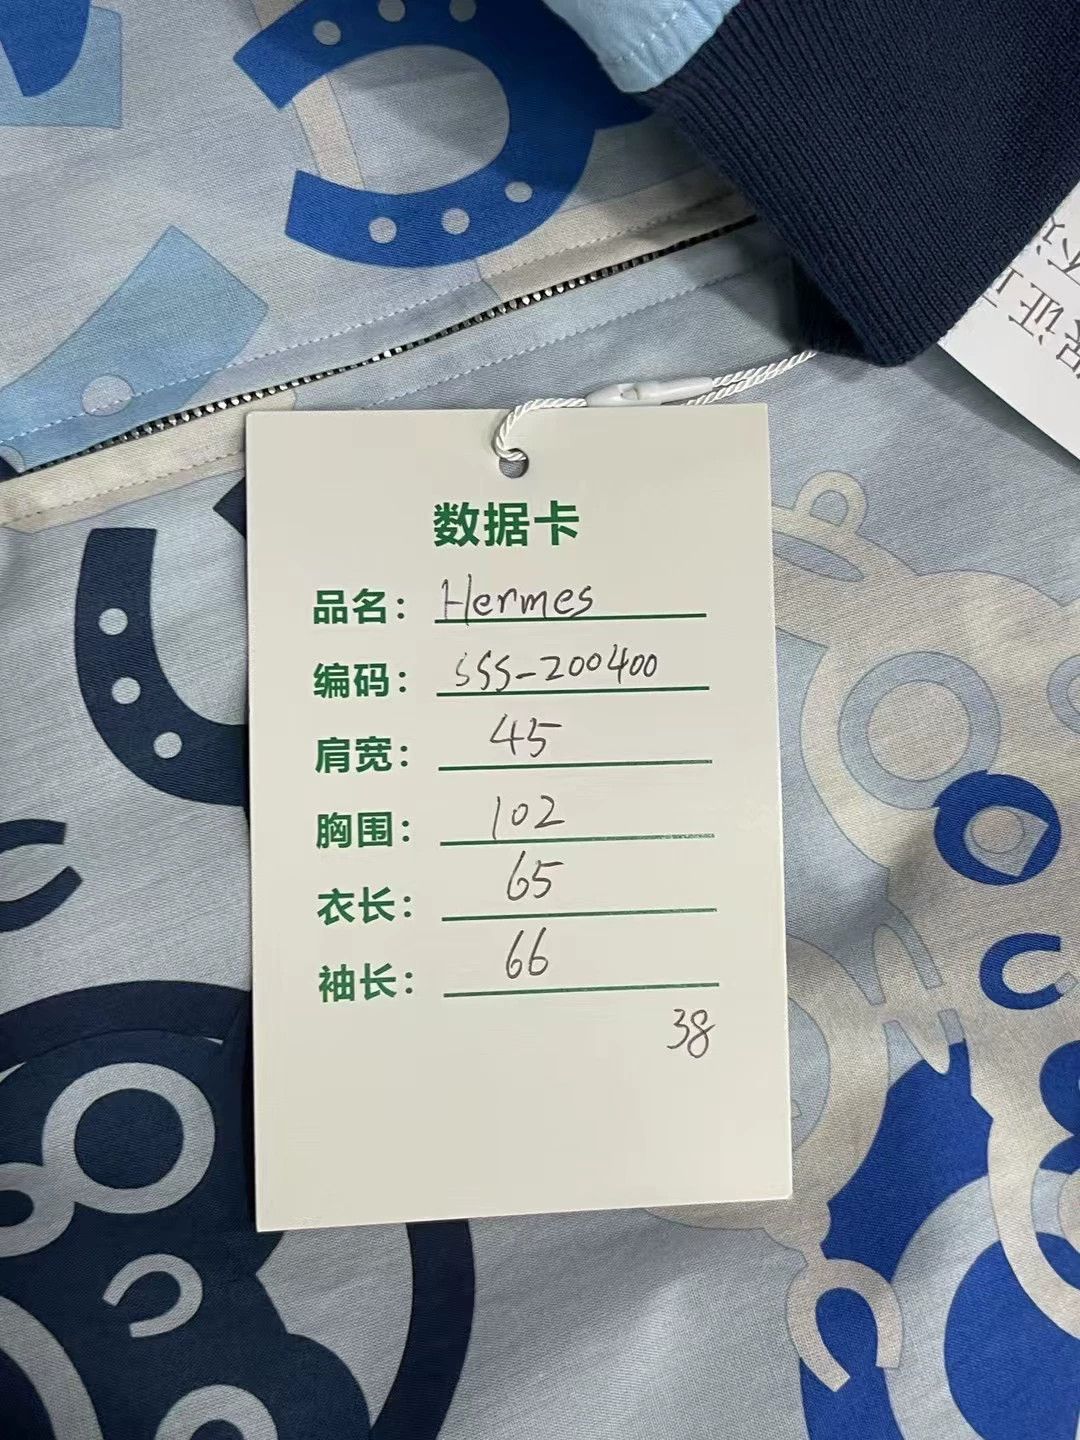 数据卡
品名：Hermes
编码：SSS-200400
肩宽：45
胸围：102
衣长：65
袖长：66
38
证
不